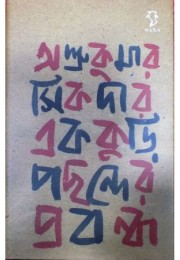 অশ্রুকুমার
সিকদার
এক কুড়ি
পছন্দের
প্রবন্ধ